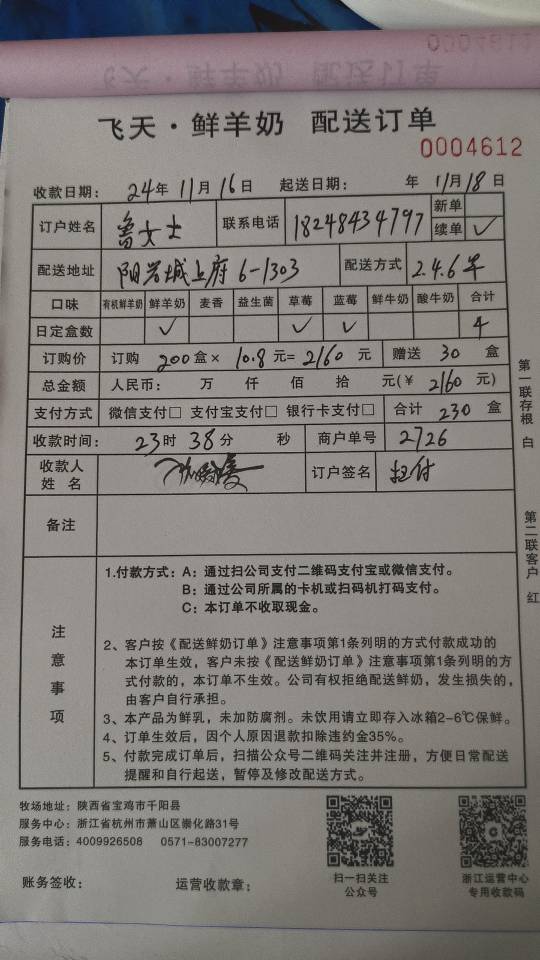 0004612
飞天·鲜羊奶 配送订单
0004612
收款日期: 24年11月16日 起送日期: 年11月18日
订户姓名 鲁女士 联系电话 18248434797 新单
续单 ✓
配送地址 阳光城上府6-1303 配送方式 2.4.6早
口味 有机鲜羊奶 鲜羊奶 麦香 益生菌 草莓 蓝莓 鲜牛奶 酸牛奶 合计
日定盒数 ✓ ✓ ✓ 4
订购价 订购 200盒× 10.8元= 2160元 赠送 30 盒
总金额 人民币: 万 仟 佰 拾 元(¥ 2160 元)
支付方式 微信支付□ 支付宝支付□ 银行卡支付□ 合计 230 盒
收款时间: 23时 38分 秒 商户单号 2726
收款人
姓 名
订户签名 扫付
备注
注意事项
1.付款方式: A: 通过扫公司支付二维码支付宝或微信支付。
B: 通过公司所属的卡机或扫码机打码支付。
C: 本订单不收取现金。
2、客户按《配送鲜奶订单》注意事项第1条列明的方式付款成功的
本订单生效,客户未按《配送鲜奶订单》注意事项第1条列明的方
式付款的,本订单不生效。公司有权拒绝配送鲜奶,发生损失的,
由客户自行承担。
3、本产品为鲜乳,未加防腐剂。未饮用请立即存入冰箱2-6℃保鲜。
4、订单生效后,因个人原因退款扣除违约金35%。
5、付款完成订单后,扫描公众号二维码关注并注册,方便日常配送
提醒和自行起送,暂停及修改配送方式。
第一联存根 白
第二联客户 红
牧场地址: 陕西省宝鸡市千阳县
服务中心: 浙江省杭州市萧山区崇化路31号
服务电话: 4009926508 0571-83007277
账务签收: 运营收款章:
扫一扫关注
公众号
浙江运营中心
专用收款码